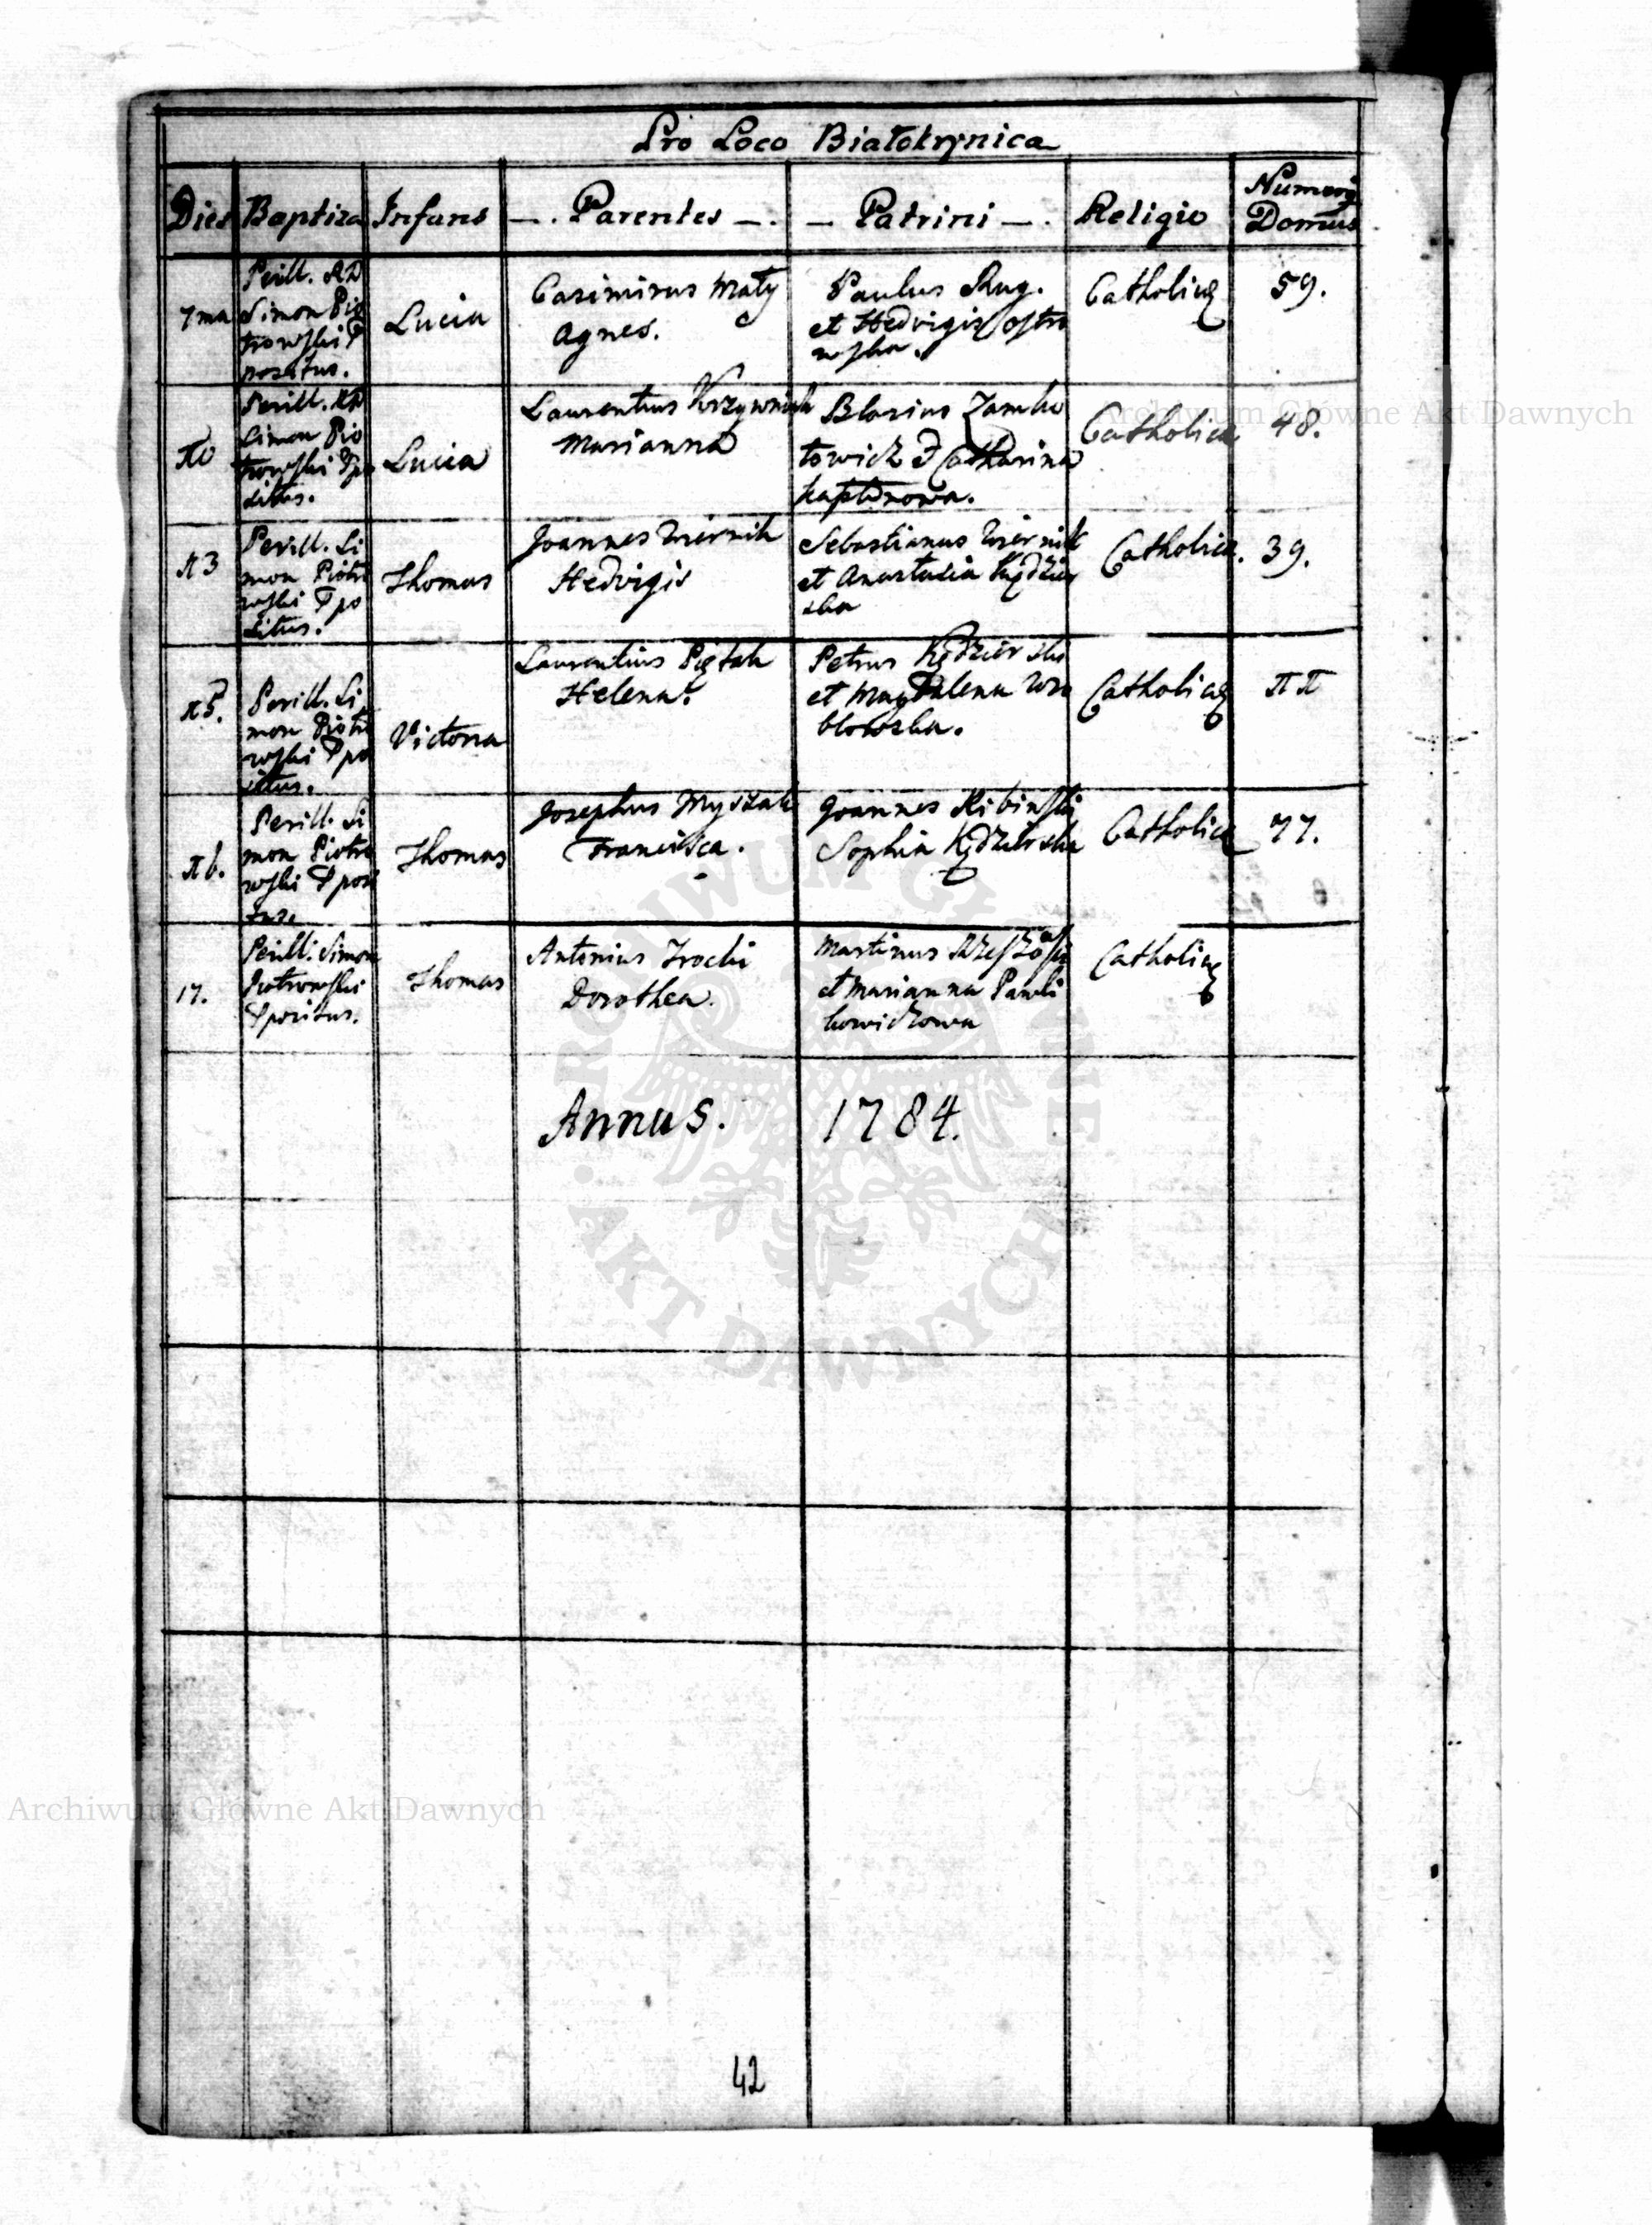 Pro Loco Białokrynica
Dies Baptiza Infans Parentes Patrini Religio Numerus Domus
7ma
Perill. RD
Simon Pio
trowski P
positus.
Lucia
Casimirus Mały
Agnes.
Paulus Rug.
et Hedvigis Ostro
wska.
Catholica
59.
10
Perill. RD
Simon Pio
trowski Ppo
situs.
Lucia
Laurentius Krzywniak
Marianna
Blasius Zamko
towicz et Catharina
Kaptonowa.
Catholica
48.
13
Perill. Si
mon Piotro
wski Ppo
situs.
Thomas
Joannes Wiernik
Hedvigis
Sebastianus Wiernik
et Anastasia Kędzier
ska
Catholica.
39.
15.
Perill. Si
mon Piotro
wski Ppo
situs.
Victoria
Laurentius Piętak
Helena.
Petrus Kędzierski
et Magdalena Wro
blowska.
Catholica
11
16.
Perill. Si
mon Piotro
wski Pposi
tus.
Thomas
Josephus Myszak
Francisca.
Joannes Ribinski
Sophia Kędzierska
Catholica
77.
17.
Perill. Simon
Piotrowski
Ppositus.
Thomas
Antonius Trocki
Dorothea.
Martinus
et Marianna Pawli
kowiczowa
Catholica
Annus. 1784.
42
Archiwum Główne Akt Dawnych
Archiwum Główne Akt Dawnych
ARCHIWUM GŁÓWNE
AKT DAWNYCH